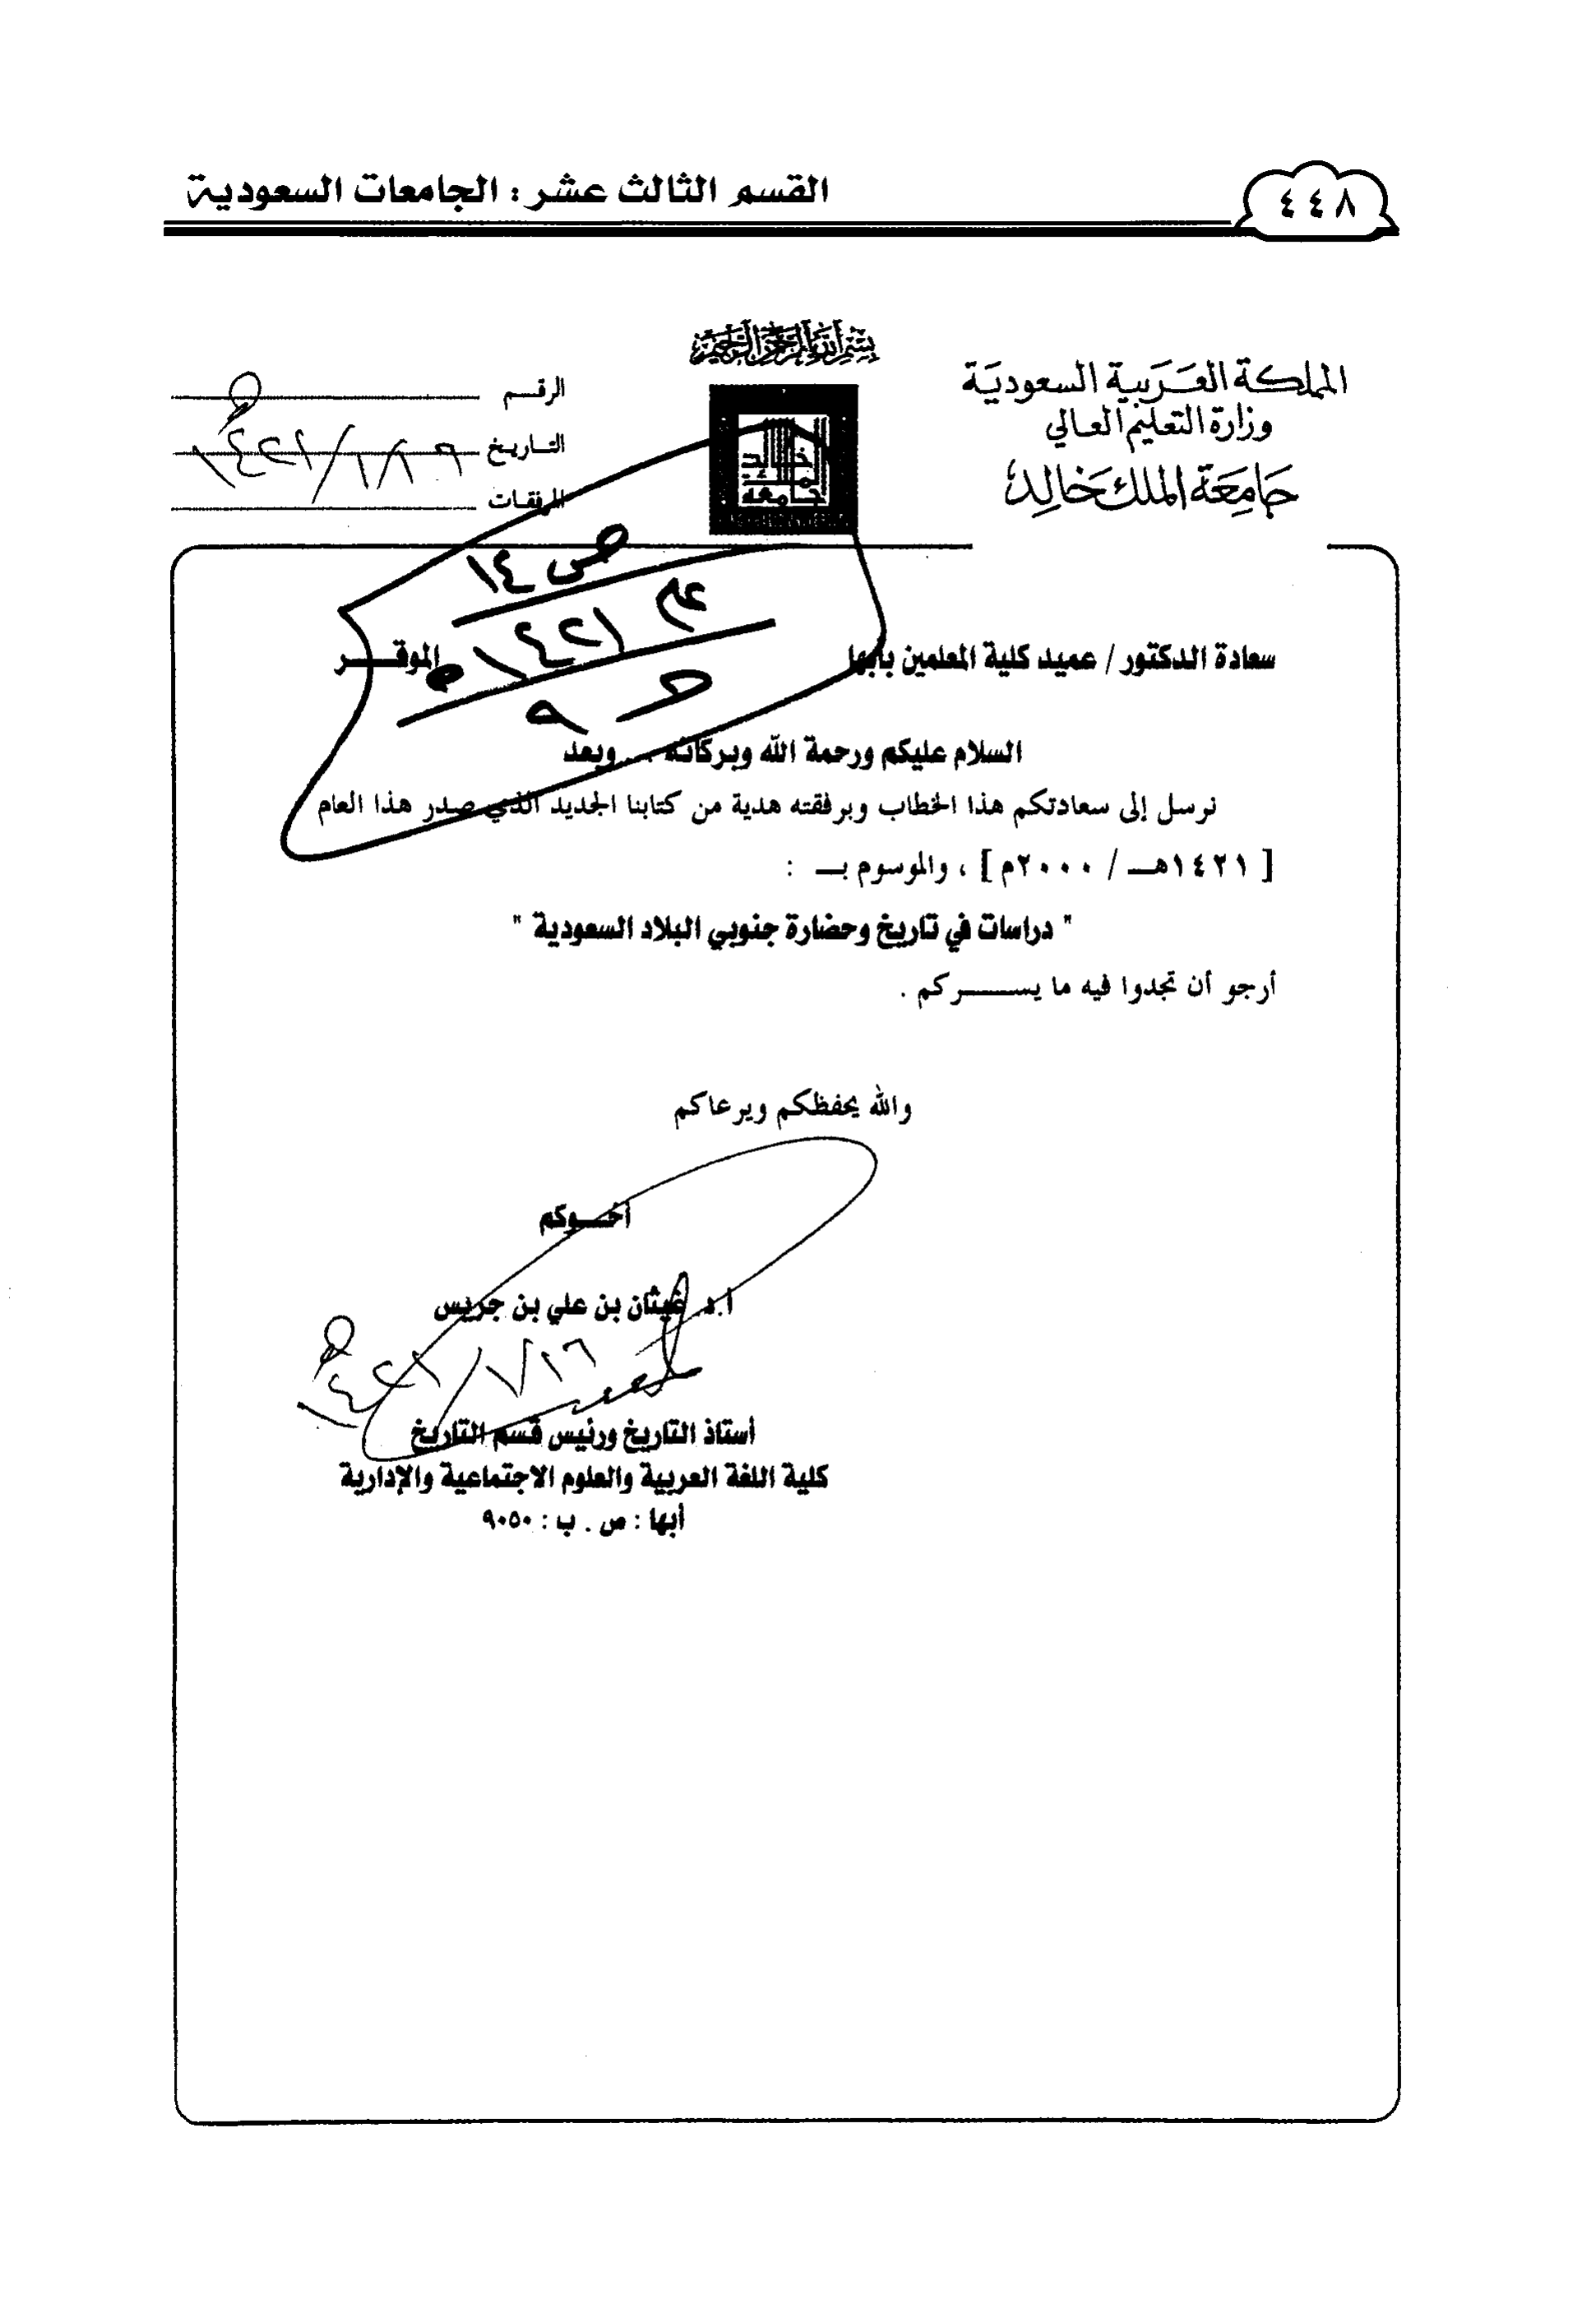 ٤٤٨
القسم الثالث عشر : الجامعات السعودية
بسم الله الرحمن الرحيم
المملكة العربية السعودية
وزارة التعليم العالي
جامعة الملك خالد
جامعة الملك خالد
الرقــم
التـاريـخ
المرفقات
ص ١٤
عام ١٤٢١هـ
سعادة الدكتور / عميد كلية المعلمين بأبها الموقـــر
السلام عليكم ورحمة الله وبركاته ... وبعد
نرسل إلى سعادتكم هذا الخطاب وبرفقته هدية من كتابنا الجديد الذي صدر هذا العام
[ ١٤٢١هـــ / ٢٠٠٠م ] ، والموسوم بــ :
" دراسات في تاريخ وحضارة جنوبي البلاد السعودية "
أرجو أن تجدوا فيه ما يســـــركم .
والله يحفظكم ويرعاكم
أخـــوكم
أ.د. غيثان بن علي بن جريس
أستاذ التاريخ ورئيس قسم التاريخ
كلية اللغة العربية والعلوم الاجتماعية والإدارية
أبها : ص . ب : ٩٠٥٠